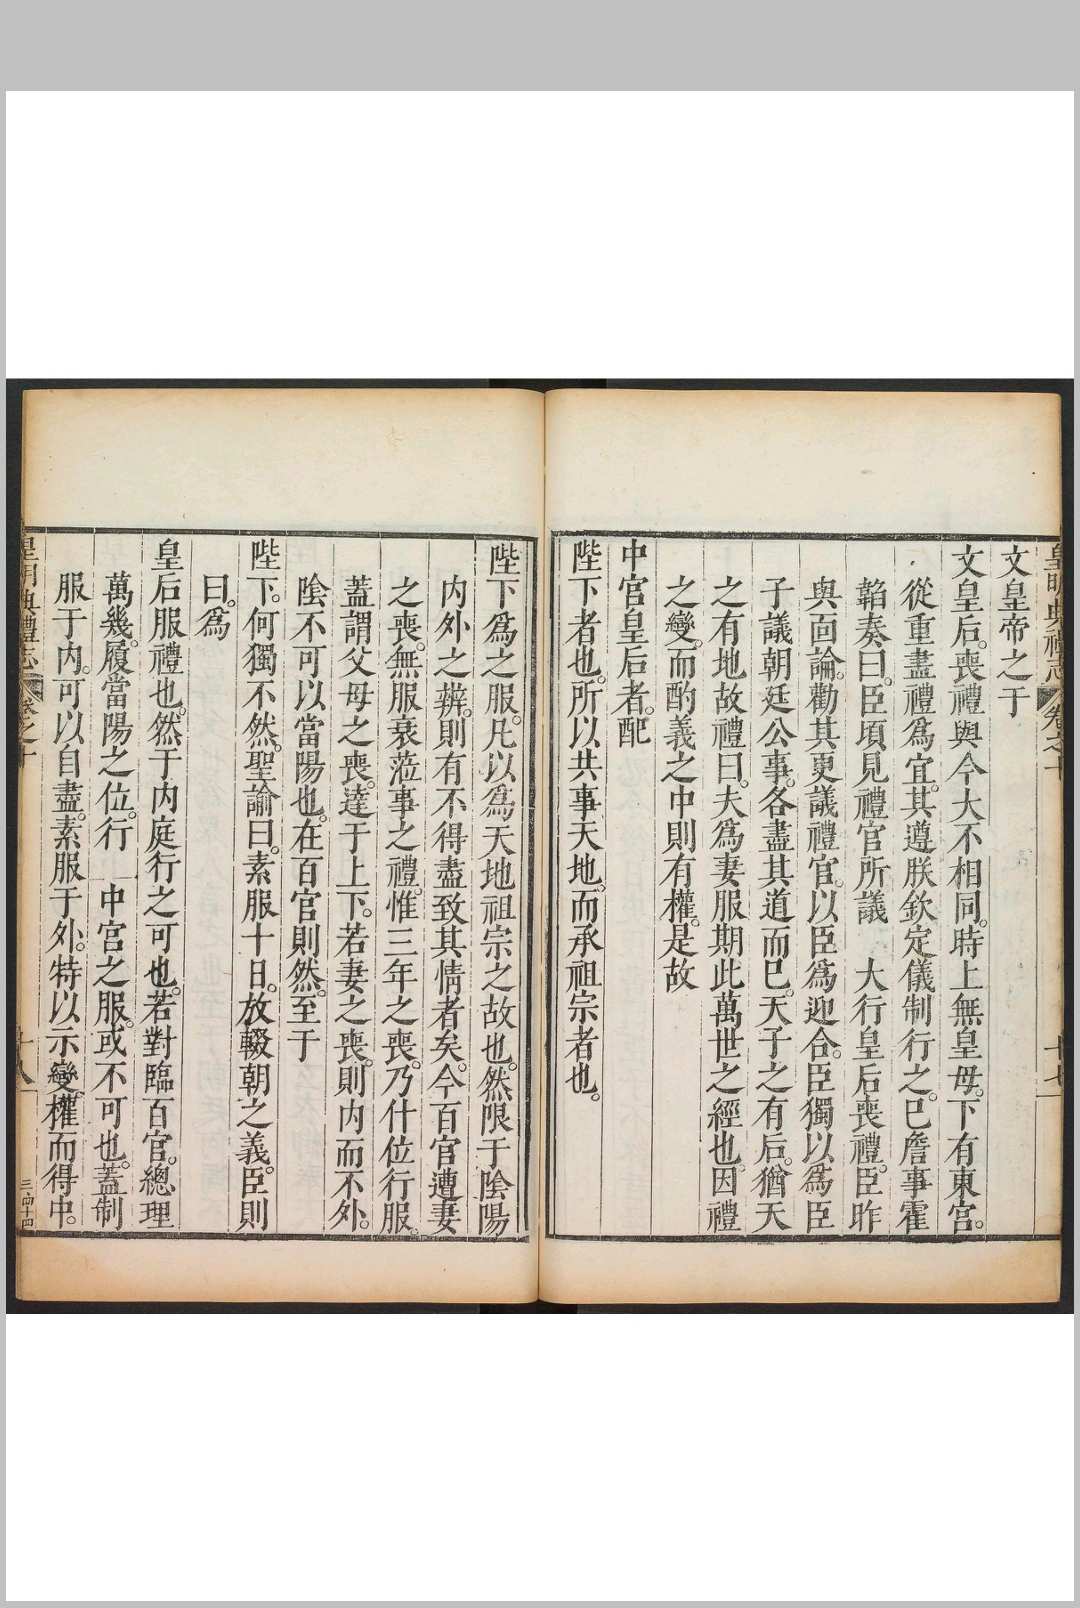 皇明典禮志 卷之十 十七
文皇帝之于
文皇后。喪禮與今大不相同。時上無皇母。下有東宮。
從重盡禮爲宜。其遵朕欽定儀制行之。已詹事霍
韜奏曰。臣頃見禮官所議 大行皇后喪禮。臣昨
與面論。勸其更議禮官。以臣爲迎合。臣獨以爲臣
子議朝廷公事。各盡其道而已。天子之有后。猶天
之有地故禮曰。夫爲妻服期此萬世之經也。因禮
之變。而酌義之中則有權。是故
中宮皇后者。配
陛下者也。所以共事天地。而承祖宗者也。
陛下爲之服。凡以爲天地祖宗之故也。然限于陰陽
内外之辨。則有不得盡致其情者矣。今百官遭妻
之喪。無服衰蒞事之禮。惟三年之喪。乃什位行服。
蓋謂父母之喪。達于上下。若妻之喪。則内而不外。
陰不可以當陽也。在百官則然。至于
陛下。何獨不然。聖諭曰。素服十日。放輟朝之義。臣則
曰。爲
皇后服禮也。然于内庭行之可也。若對臨百官。總理
萬幾。履當陽之位。行 中宮之服。或不可也。蓋制
服于内。可以自盡。素服于外。特以示變。權而得中。
皇明典禮志 卷之十 十八 三百四十四